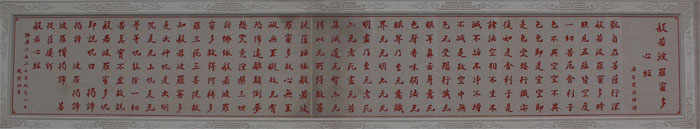 般若波羅蜜多
心經
觀自在菩薩行深
般若波羅蜜多時
照見五蘊皆空度
一切苦厄舍利子
色不異空空不異
色色即是空空即
是色受想行識亦
復如是舍利子是
諸法空相不生不
滅不垢不淨不增
不減是故空中无
色无受想行識无
眼耳鼻舌身意无
色聲香味觸法无
眼界乃至无意識
界无无明亦无无
明盡乃至无老死
亦无老死盡无苦
集滅道无智亦无
得以无所得故菩
提薩埵依般若波
羅蜜多故心无罣
礙无罣礙故无有
恐怖遠離顛倒夢
想究竟涅槃三世
諸佛依般若波羅
蜜多故得阿耨多
羅三藐三菩提故
知般若波羅蜜多
是大神咒是大明
咒是无上咒是无
等等咒能除一切
苦真實不虛故說
般若波羅蜜多咒
即說咒曰 揭諦
揭諦 波羅揭諦
波羅僧揭諦 菩
提薩婆訶
般若心經